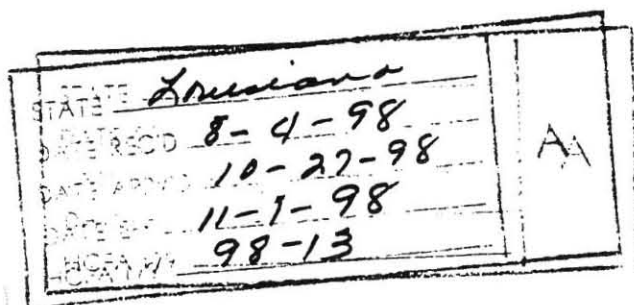 STATE Louisiana
DATE REC'D 8-4-98
DATE APPV'D 10-27-98
DATE EFF 11-1-98
HCFA 179 98-13
A